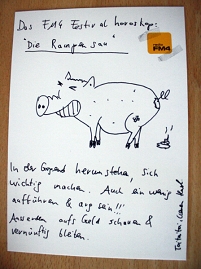 Das FM4 Festival horoskop:
"Die Rampensau"
FM4
In der Gegend herumstehen, sich
wichtig machen. Auch ein wenig
aufführen & arg sein!!!
Ausserdem aufs Geld schauen &
vernünftig bleiben.